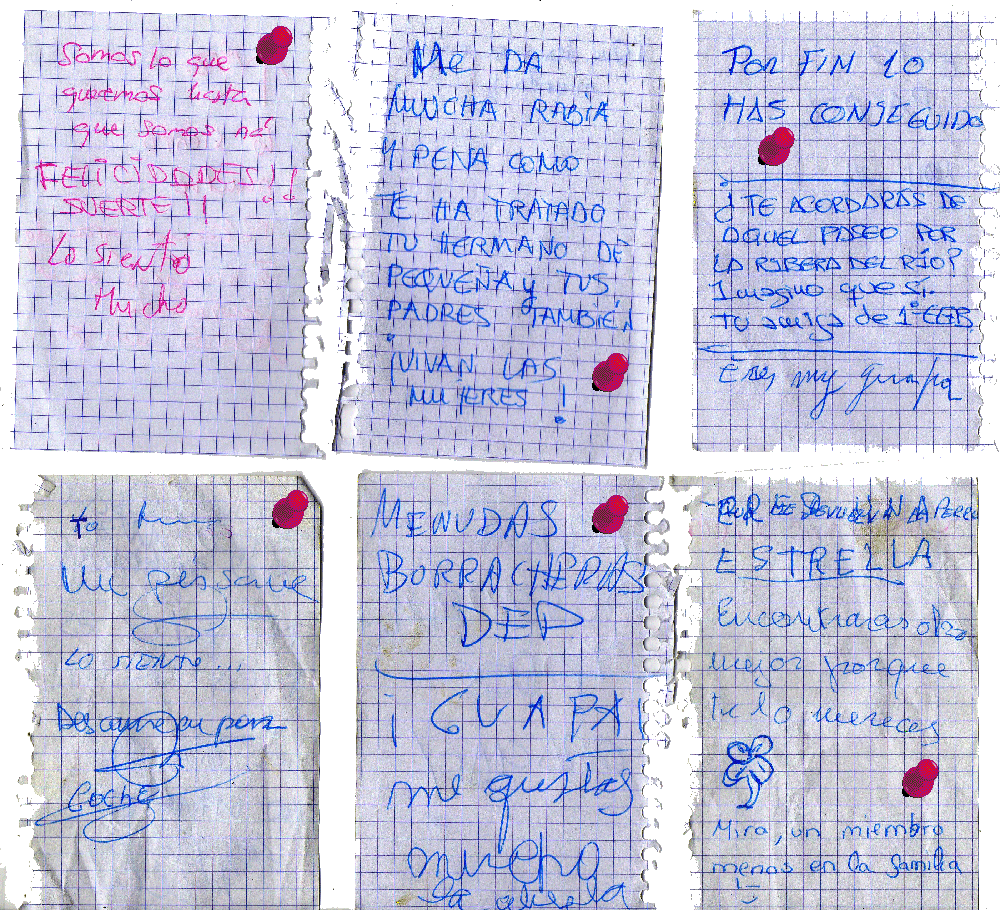 Somos lo que
queremos hasta
que somos, no?
FELICIDADES!!
SUERTE!!
Lo siento
Mucho
Me DA
MUCHA RABIA
Y PENA COMO
TE HA TRATADO
TU HERMANO DE
PEQUEÑA y TUS
PADRES TAMBIÉN
¡VIVAN LAS
MUJERES!
POR FIN LO
HAS CONSEGUIDO
¿TE ACORDARÁS DE
AQUEL PASEO POR
LA RIBERA DEL RÍO?
Imagino que sí.
Tu amiga de 1º EGB
Eres muy guapa
Un pésame
LO SIENTO...
Descanse en paz
Coche
MENUDAS
BORRACHERAS
DEP
¡GUAPA!
me gustas
mucho
la abuela
QUE TE DEVUELVAN LA PERRA
ESTRELLA
Encontraras otro
mejor porque
tu lo mereces
Mira, un miembro
menos en la familia